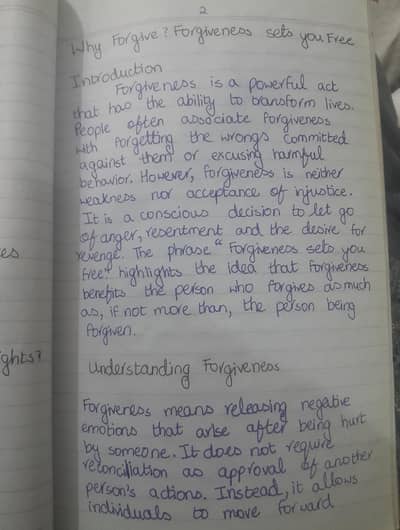 2
Why Forgive? Forgiveness sets you Free
Introduction
Forgiveness is a powerful act
that has the ability to transform lives.
People often associate forgiveness
with forgetting the wrongs committed
against them or excusing harmful
behavior. However, forgiveness is neither
weakness nor acceptance of injustice.
It is a conscious decision to let go
of anger, resentment and the desire for
revenge. The phrase "Forgiveness sets you
free" highlights the idea that forgiveness
benefits the person who forgives as much
as, if not more than, the person being
forgiven.
es
ghts?
Understanding Forgiveness
Forgiveness means releasing negative
emotions that arise after being hurt
by someone. It does not require
reconciliation as approval of another
person's actions. Instead, it allows
individuals to move forward